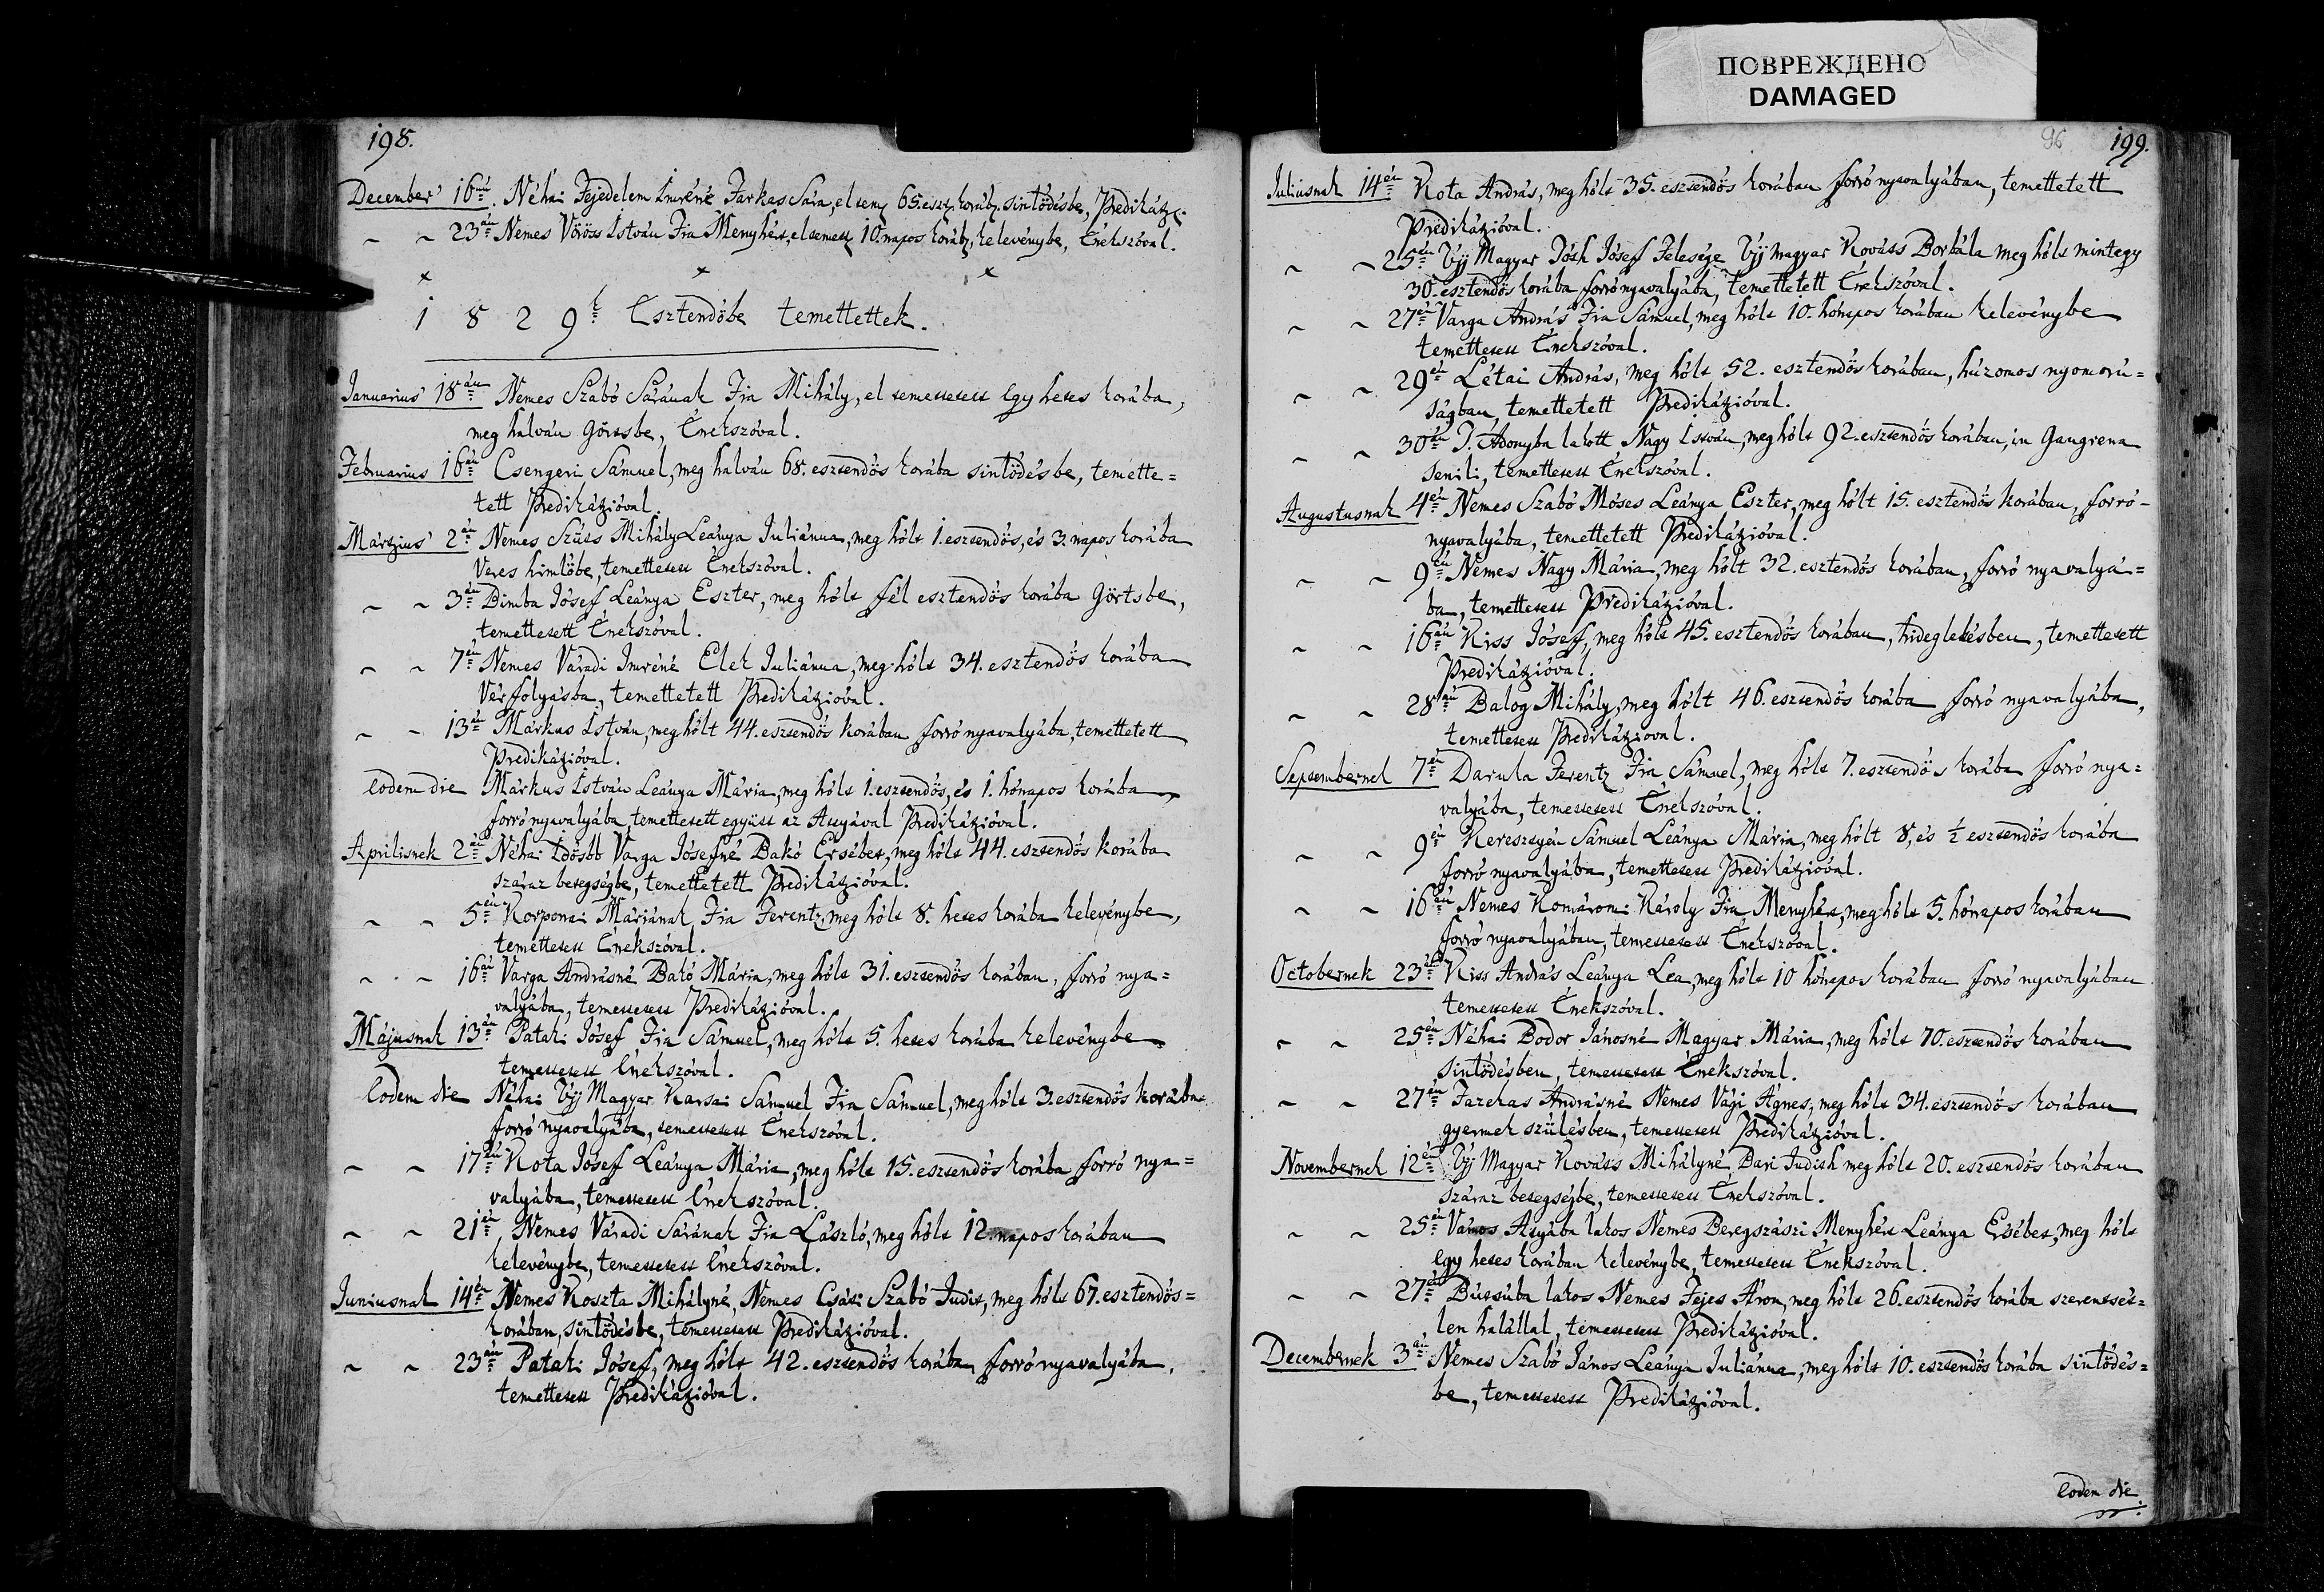 ПОВРЕЖДЕНО
DAMAGED
198.
December' 16án. Néhai Fejedelem Imréné Farkas Sára, el tem 65. eszt. koráb. sintlödésbe, Predikátz.
~ ~ 23án Nemes Vörös István Fia Menyhért, eltemett 10. napos koráb, kelevénybe, Énekszóval.
x x x
1829k Esztendőbe temettettek.
Januarius' 18án Nemes Szabó Sárának Fia Mihály, el temettetett Egy hetes korába,
meg halván Görtsbe, Énekszóval.
Februarius 16án Csengeri Sámuel, meg halván 68. esztendős korába sintlödésbe, temette=
tett Predikátzióval.
Mártzius' 2án Nemes Szüts Mihály Leánya Juliánna, meg hólt 1. esztendős, és 3. napos korába
Veres himlöbe, temettetett Énekszóval.
~ ~ 3án Dimba Jósef Leánya Eszter, meg hólt fél esztendős korába Görtsbe,
temettetett Énekszóval.
~ ~ 7én Nemes Váradi Imréné Elek Juliánna, meg hólt 34. esztendős korába
Vérfolyásba, temettetett Predikátzióval.
~ ~ 13án Márkus István, meg hólt 44. esztendős korában forró nyavalyába, temettetett
Predikátzióval.
Eodem die Márkus István Leánya Mária, meg hólt 1. esztendős, és 1. hónapos korába,
forró nyavalyába temettetett együtt az Attyával Predikátzióval.
Aprilisnek 2án Néhai Idősbb Varga Jósefné Bakó Ersébet, meg hólt 44. esztendős korába
száraz betegségbe, temettetett Predikátzióval.
~ ~ 5én Korponai Máriának Fia Ferentz, meg hólt 8. hetes korába kelevénybe,
temettetett Énekszóval.
~ ~ 16án Varga Andrásné Bakó Mária, meg hólt 31. esztendős korában, forró nya=
valyába, temettetett Predikátzióval.
Májusnak 13án Pataki Jósef Fia Sámuel, meg hólt 5. hetes korába kelevénybe
temettetett Énekszóval.
Eodem die Néhai Ujj Magyar Karsai Sámuel Fia Sámuel, meg hólt 3. esztendős korába
forró nyavalyába, temettetett Énekszóval.
~ ~ 17én Kota Jósef Leánya Mária, meg hólt 15. esztendős korába forró nya=
valyába, temettetett Énekszóval.
~ ~ 21én Nemes Váradi Sárának Fia László, meg hólt 12. napos korában
kelevénybe, temettetett Énekszóval.
Juniusnak 14én Nemes Koszta Mihályné, Nemes Csáti Szabó Judit, meg hólt 67. esztendős=
korában, sintlödésbe, temettetett Predikátzióval.
~ ~ 23án Pataki Jósef, meg hólt 42. esztendős korába, forró nyavalyába,
temettetett Predikátzióval.
96 199.
Juliusnak 14én Kota András, meg hólt 35. esztendős korában forró nyavalyában, temettetett
Predikátzióval.
~ ~ 25én Ujj Magyar Jósef Felesége Ujj Magyar Kováts Borbála meg hólt mintegy
30. esztendős korába forró nyavalyába, temettetett Énekszóval.
~ ~ 27én Varga András Fia Sámuel, meg hólt 10. hónapos korában kelevénybe
temettetett Énekszóval.
~ ~ 29én Létai András, meg hólt 52. esztendős korában, húzomos nyomorú=
ságban, temettetett Predikátzióval.
~ ~ 30án T. Adonyba lakott Nagy István, meg hólt 92. esztendős korában, in Gangrena
senili, temettetett Énekszóval.
Augustusnak 4én Nemes Szabó Móses Leánya Eszter, meg hólt 15. esztendős korában, forró-
nyavalyába, temettetett Predikátzióval.
~ ~ 9én Nemes Nagy Mária, meg hólt 32. esztendős korában, forró nyavalyá=
ba, temettetett Predikátzióval.
~ ~ 16án Kiss Jósef, meg hólt 45. esztendős korában, hideglelésben, temettetett
Predikátzióval.
~ ~ 28án Balog Mihály, meg hólt 46. esztendős korába forró nyavalyába,
temettetett Predikátzióval.
Septembernek 7én Darula Ferentz Fia Sámuel, meg hólt 7. esztendős korába forró nya=
valyába, temettetett Énekszóval.
~ ~ 9én Keresztyén Sámuel Leánya Mária, meg hólt 8, és ½ esztendős korába
forró nyavalyába, temettetett Predikátzióval.
~ ~ 16án Nemes Komáromi Károly Fia Menyhért, meg hólt 5. hónapos korában
forró nyavalyában, temettetett Énekszóval.
Octobernek 23án Kiss András Leánya Lea, meg hólt 10 hónapos korában forró nyavalyában
temettetett Énekszóval.
~ ~ 25én Néhai Bodor Jánosné Magyar Mária, meg hólt 70. esztendős korában
sintlödésben, temettetett Énekszóval.
~ ~ 27én Fazekas Andrásné Nemes Vági Ágnes, meg hólt 34. esztendős korában
gyermek szülésben, temettetett Predikátzióval.
Novembernek 12én Ujj Magyar Kováts Mihályné Dari Judith meg hólt 20. esztendős korában
száraz betegségbe, temettetett Énekszóval.
~ ~ 25én Vámos Atyába lakos Nemes Beregszászi Menyhért Leánya Ersébet, meg hólt
egy hetes korában kelevénybe, temettetett Énekszóval.
~ ~ 27én lakos Nemes Fejes Áron, meg hólt 26. esztendős korába szerentsét=
len halállal, temettetett Predikátzióval.
Decembernek 3án Nemes Szabó János Leánya Juliánna, meg hólt 10. esztendős korába sintlödés=
be, temettetett Predikátzióval.
Eodem die